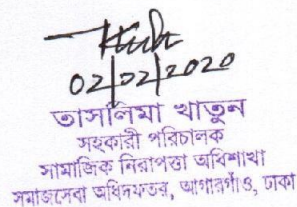 02/02/2020
তাসলিমা খাতুন
সহকারী পরিচালক
সামাজিক নিরাপত্তা অধিশাখা
সমাজসেবা অধিদফতর, আগারগাঁও, ঢাকা